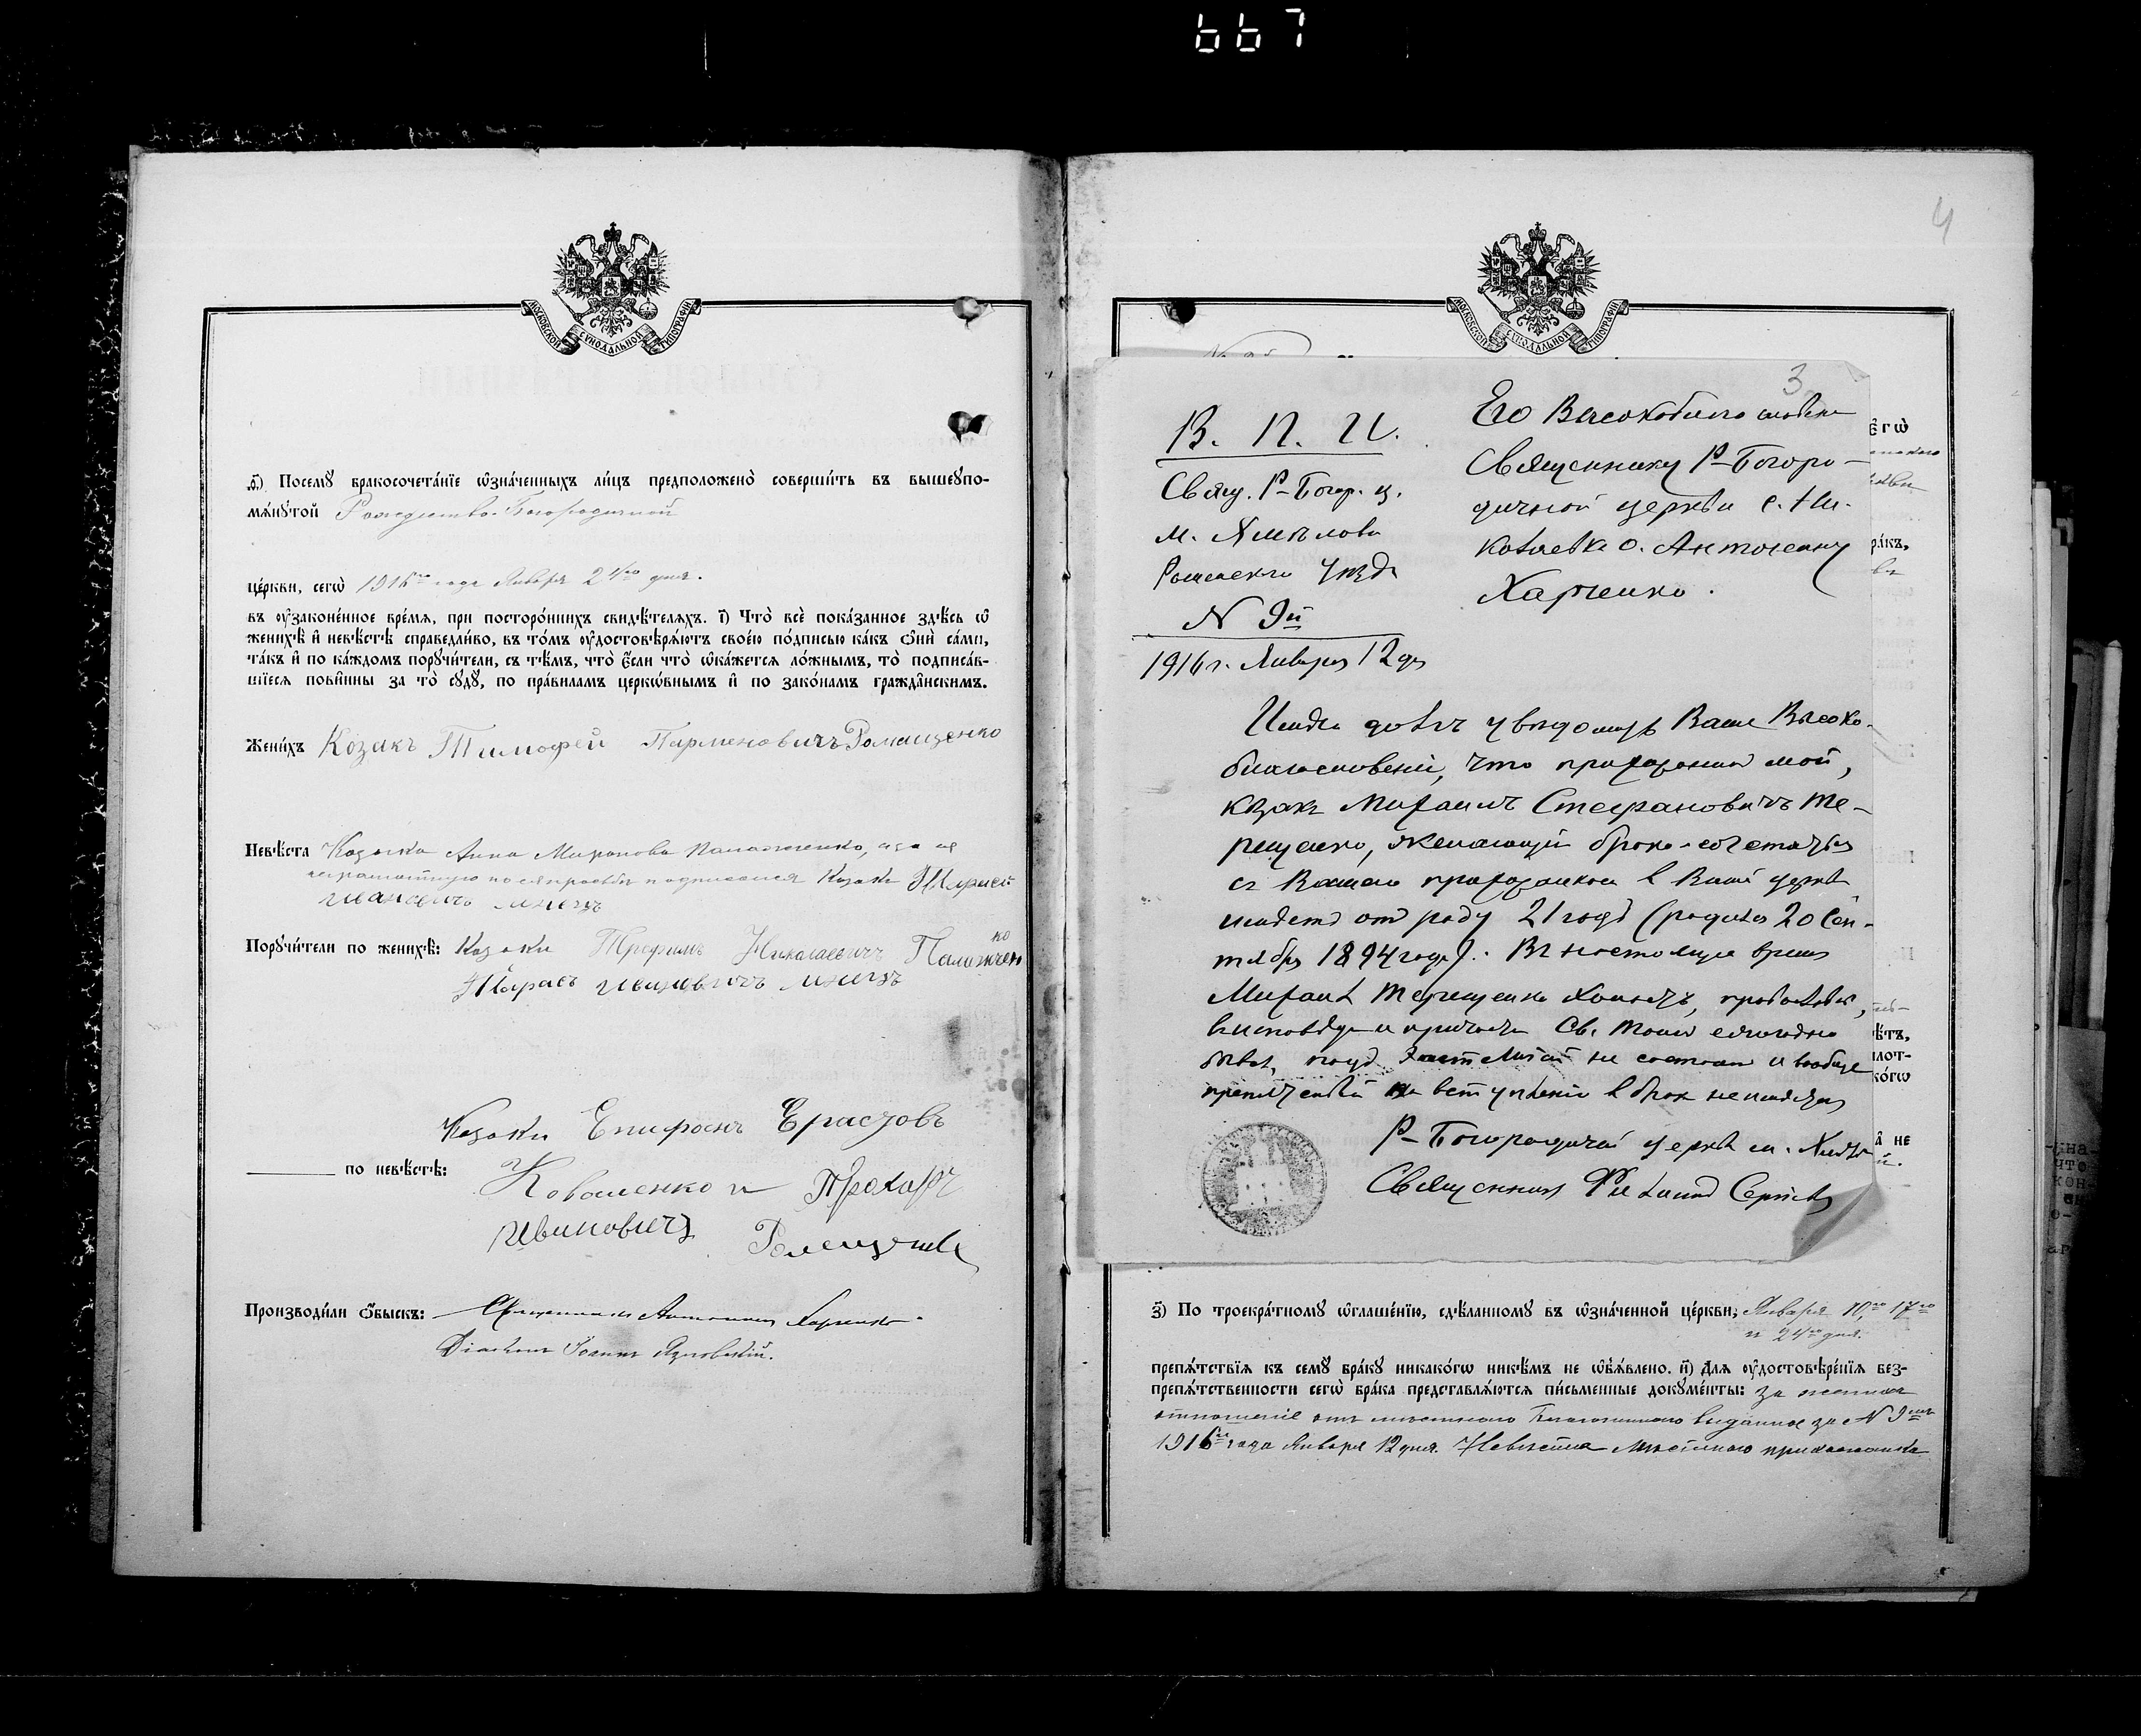 667
МОСКОВСКОЙ СѴНОДАЛЬНОЙ ТИПОГРАФІИ
д҃) Посемꙋ бракосочета́нїе ѡ҆зна́ченныхъ ли́цъ предположено̀ соверши́ть въ вышеꙋпо-
мѧ́нꙋтой Рождество-Богородичной
це́ркви, сегѡ̀ 1916го года Января 24го дня.
въ ᲂу҆законе́нное вре́мѧ, при посторо́ннихъ свидѣ́телѧхъ. і҃) Что̀ всѐ пока́занное здѣ́сь ѡ҆
женихѣ̀ и҆ невѣ́стѣ справедли́во, въ то́мъ ᲂу҆достовѣрѧ́ютъ свое́ю по́дписью ка́къ ѻ҆нѝ са́ми,
та́къ и҆ по ка́ждомъ порꙋчи́тели, съ тѣ́мъ, что̀ є҆́сли что̀ ѡ҆ка́жетсѧ ло́жнымъ, то̀ подписа́в-
шїесѧ пови́нны за то̀ сꙋдꙋ̀, по пра́виламъ церкѡ́внымъ и҆ по зако́намъ гражда́нскимъ.
Жени́хъ Козакъ Тимофей Парменовичъ Ромащенко
Невѣ́ста Козачка Анна Миронова Паламженко, а за не
грамотную по ея просьбѣ подписался Козакъ
Ивановичъ
Порꙋчи́тели по женихѣ̀: Козаки Трофимъ Николаевичъ Паламженко
Ивановичъ
Козаки Епифанъ Ерастовъ
по невѣ́стѣ: Коваленко и Прохоръ
Ивановичъ Ромащенко
Производи́ли ѻ҆́быскъ: Священникъ Антоній Харченко.
Діаконъ Іоаннъ
4
МОСКОВСКОЙ СѴНОДАЛЬНОЙ ТИПОГРАФІИ
3
В. П. И.
Свящ. Р-Богор. ц.
м. Хмѣлова
Роменскаго Уѣзда
N 9й
1916 г. Января 12 дня
Его Высокоблагословенію
Священнику Р-Богоро-
дичной церкви с. Ни-
колаевки о. Антонію
Харченко.
Имѣю честь увѣдомить Ваше Высоко-
благословеніе, что прихожанинъ мой,
козакъ Михаилъ Стефановичъ Те-
рещенко, желающій брако-сочетаться
съ Вашею прихожанкою в Вашей церкви
имѣетъ отъ роду 21 годъ (родился 20 Сен-
тября 1894 года). Въ настоящее время
Михаилъ Терещенко холостъ, православный,
на исповѣди и причастіи Св. Таинъ ежегодно
бывалъ, подъ не состоитъ и вообще
препятствій на вступленіе в бракъ не имѣетъ
Р-Богородичной церкви м. Хмѣлова
Священникъ Сергѣевъ
з҃) По троекра́тномꙋ ѡ҆глаше́нїю, сдѣ́ланномꙋ въ ѡ҆зна́ченной це́ркви, Января 10го, 17го
и 24го дня.
препѧ́тствїѧ къ семꙋ̀ бра́кꙋ никако́гѡ никѣ́мъ не ѡ҆б̾ѧ́влено. и҃) Длѧ ᲂу҆достовѣре́нїѧ без-
препѧ́тственности сегѡ̀ бра́ка представлѧ́ютсѧ пи́сьменные докꙋме́нты: за жениха
отношеніе отъ мѣстнаго выданное за N 9мъ
1916го года Января 12 дня. Невѣста мѣстного прихожанка